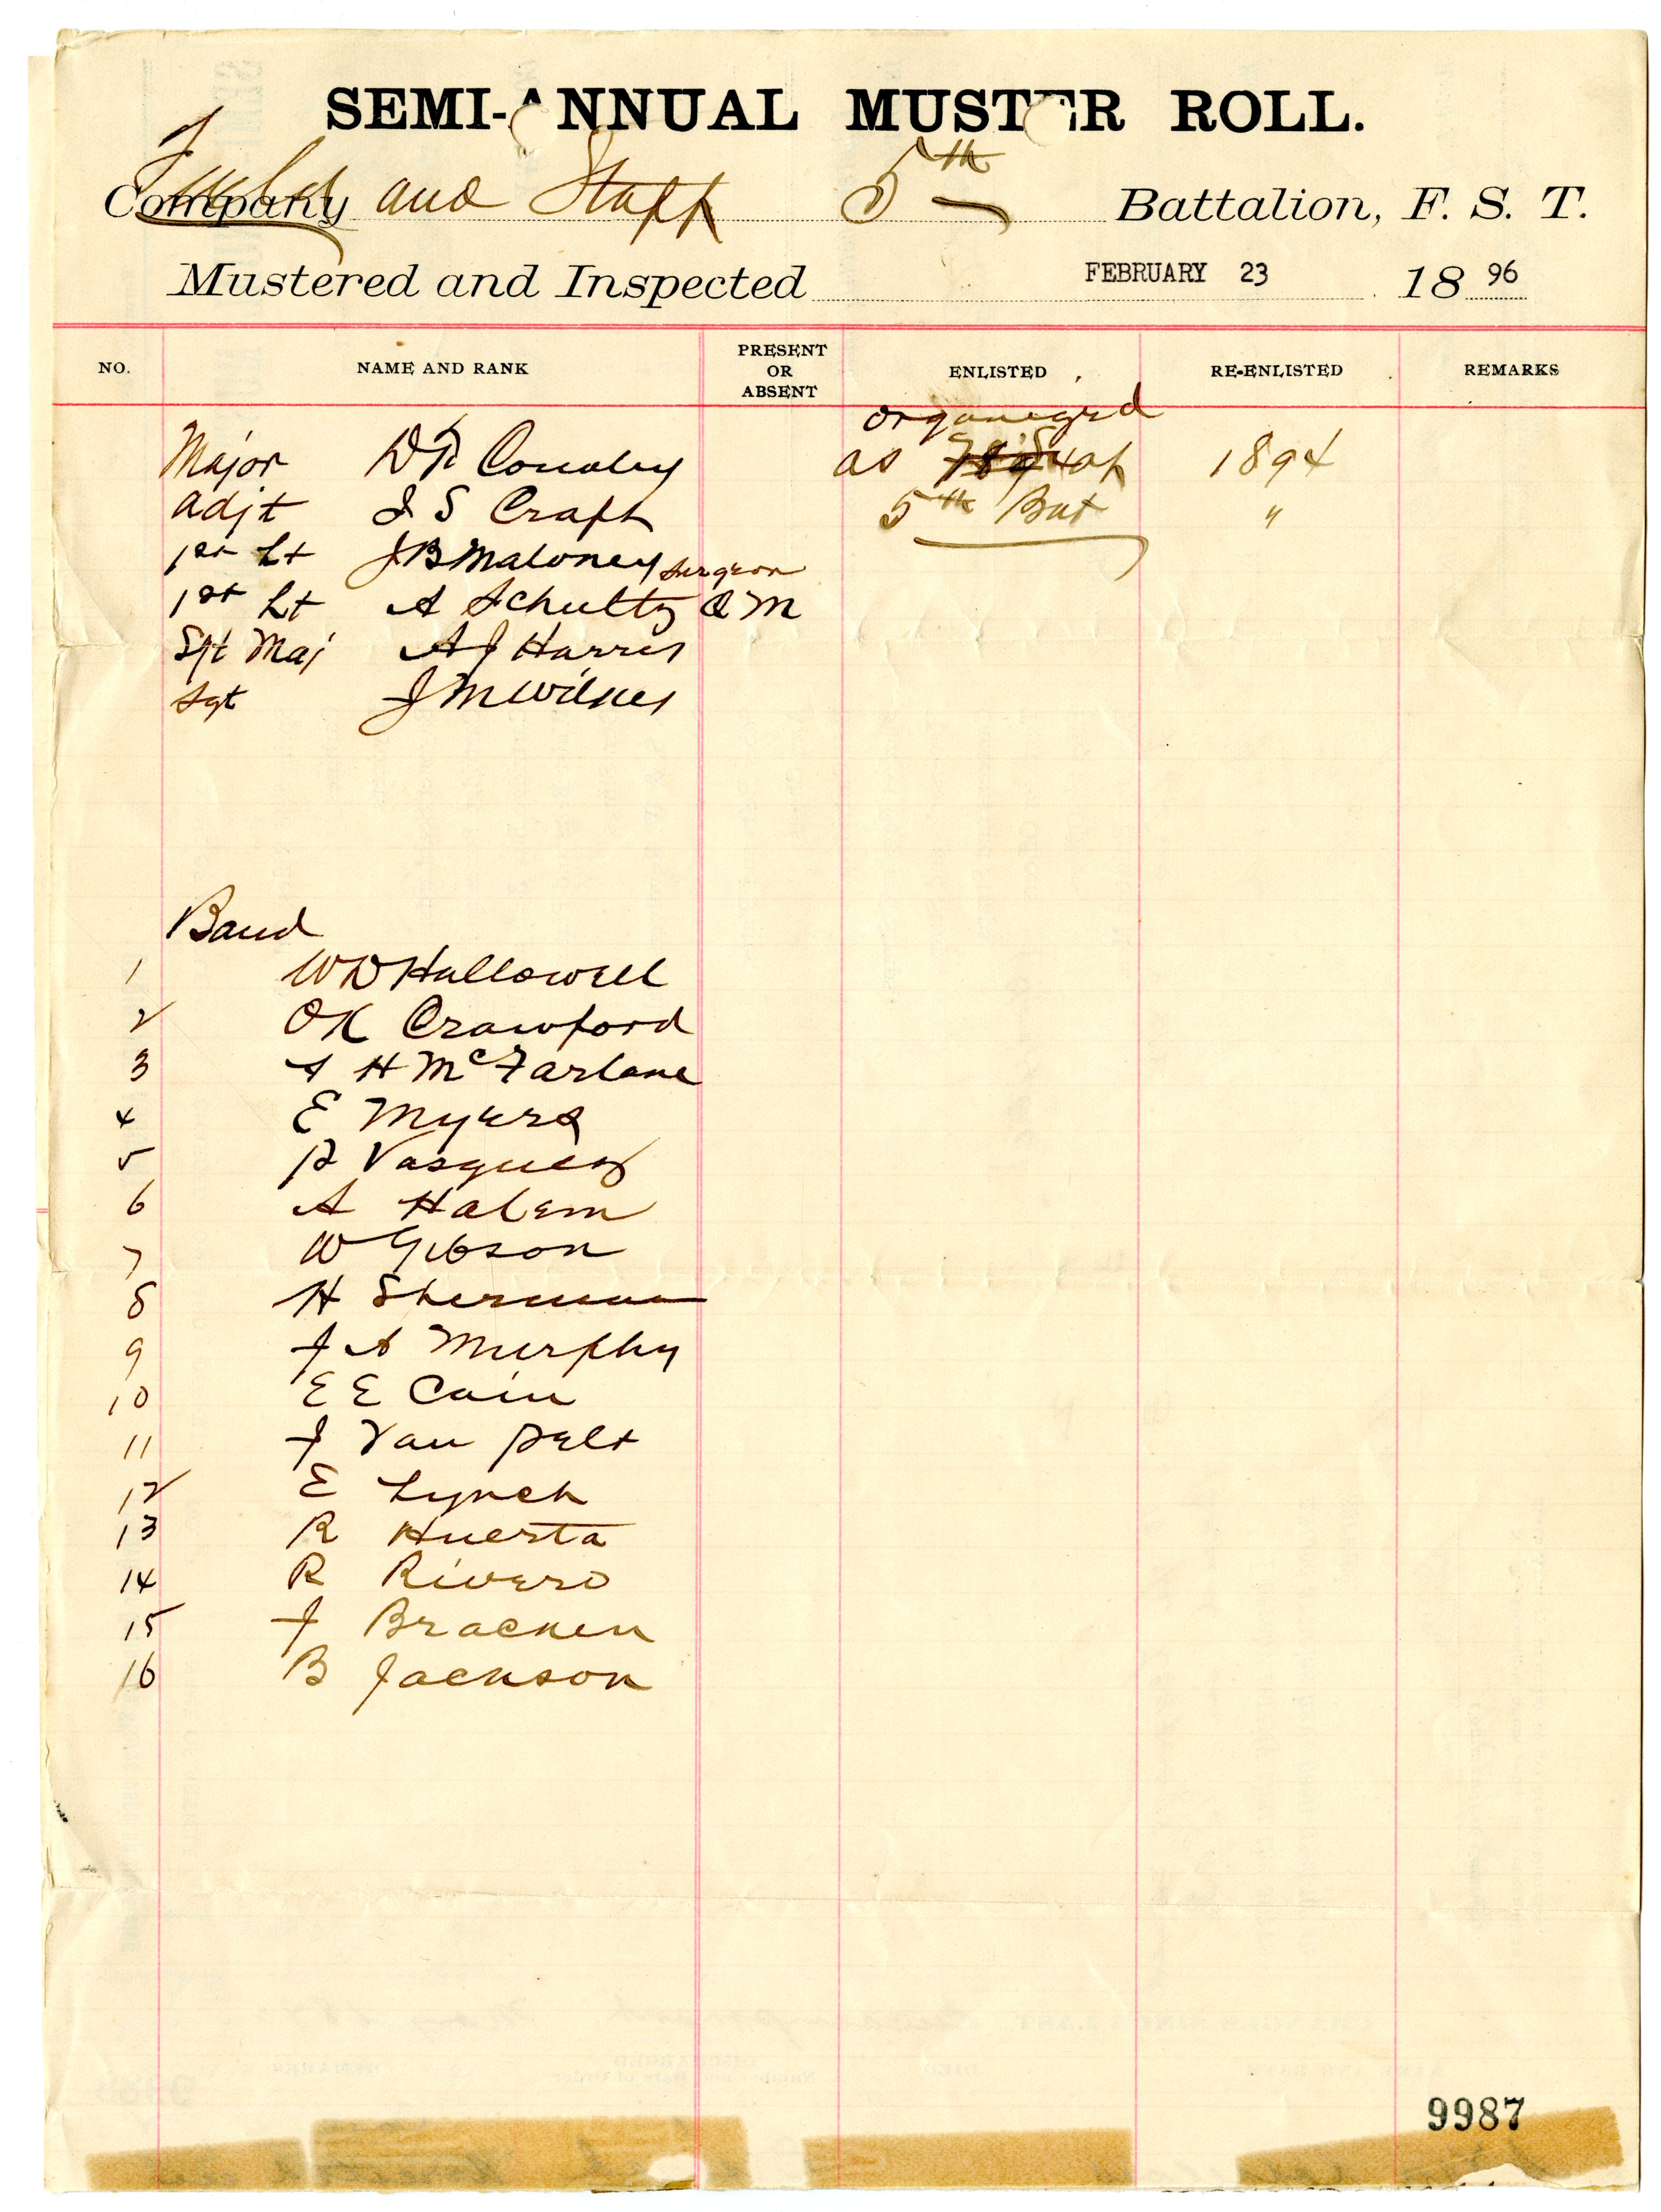 SEMI-ANNUAL MUSTER ROLL.
Company Field and Staff 5th Battalion, F. S. T.
Mustered and Inspected FEBRUARY 23 1896
NO. NAME AND RANK PRESENT OR ABSENT ENLISTED RE-ENLISTED REMARKS
organized
Major as 1894
Adjt J S Craft 5th Bat "
1st Lt J B Maloney Surgeon
1st Lt A Schultz Q M
Sgt Maj A J Harris
Sgt J M Wilkes
Band
1 W D Hallowell
2 O K Crawford
3 A H McFarlane
4 E Myers
5 P Vasquez
6 A Halem
7 W Gibson
8 H Sherman
9 J A Murphy
10 E E Cain
11 J Van Pelt
12 E Lynch
13 R Huerta
14 R Rivero
15 J Bracken
16 B Jackson
9987